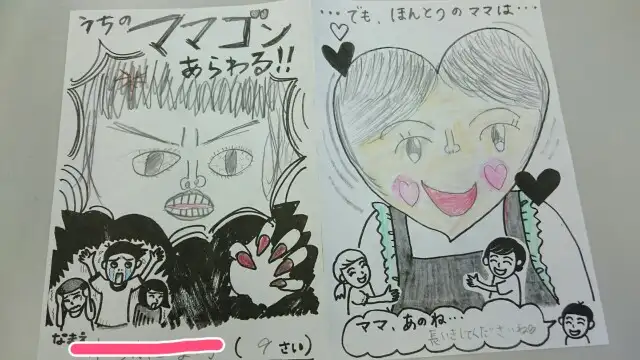 うちの
ママゴン
あらわる!!
なまえ
(9さい)
…でも、ほんとうのママは…
ママ、あのね…
長いきしてくださいね